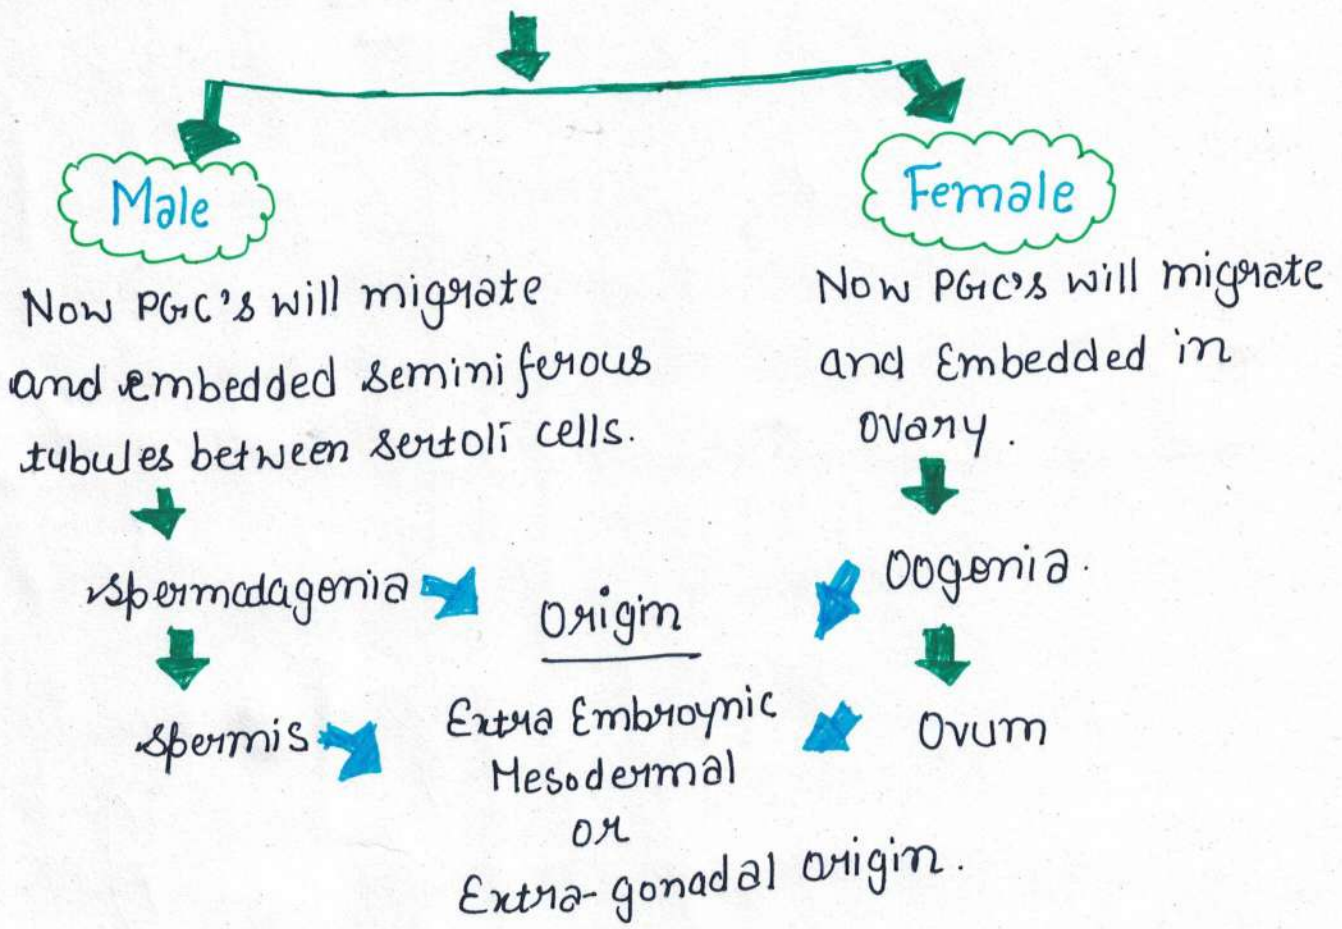 Male
Now PGC's will migrate
and embedded seminiferous
tubules between sertoli cells.
spermatagonia
spermis
Female
Now PGC's will migrate
and Embedded in
ovary.
Oogonia.
Ovum
Origin
Extra Embroynic
Mesodermal
or
Extra-gonadal origin.